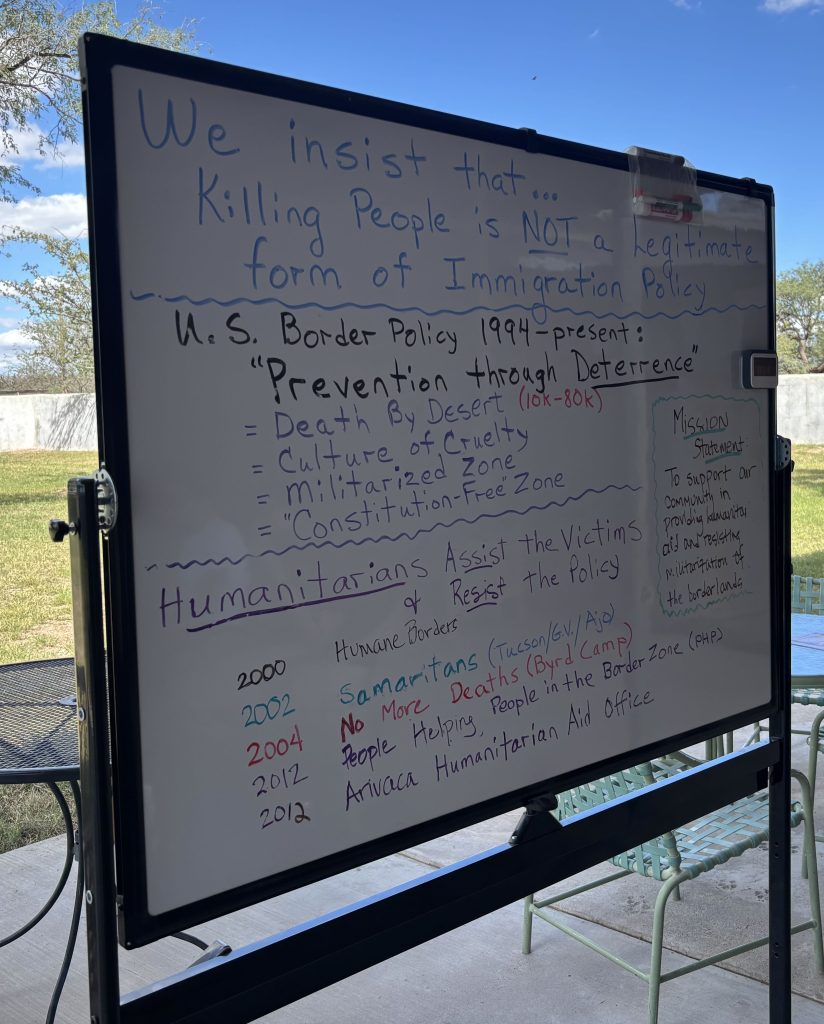 We insist that...
Killing People is NOT a Legitimate
form of Immigration Policy
U.S. Border Policy 1994-present:
"Prevention through Deterrence"
= Death By Desert (10k-80k)
= Culture of Cruelty
= Militarized Zone
= "Constitution-Free" Zone
Humanitarians Assist the Victims
& Resist the Policy
2000 Humane Borders
2002 Samaritans (Tucson/G.V./Ajo)
2004 No More Deaths (Byrd Camp)
2012 People Helping People in the Border Zone (PHP)
2012 Arivaca Humanitarian Aid Office
Mission
Statement:
To support our
community in
providing humanitar
aid and resisting
militarization of
the borderlands